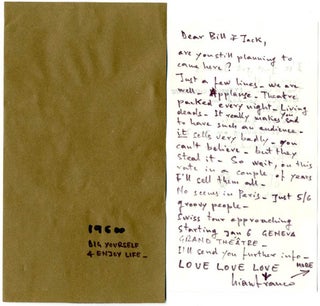 Dear Bill & Jack,
are you still planning to
came here?
Just a few lines - we are
well - Applause. Theatre
packed every night - Living
deads - It really makes sad
you
to have such an audience -
it sells very badly - you
can't believe - but they
steal it - So wait, on this
in a couple of years
I'll sell them all -
No seems in Paris - Just 5/6
groovy people -
Swiss tour approaching
starting Jan 6 GENEVA
GRAND THEATRE -
I'll send you further info -
LOVE LOVE LOVE
MORE
Gianfranco
BIG YOURSELF
& ENJOY LIFE -